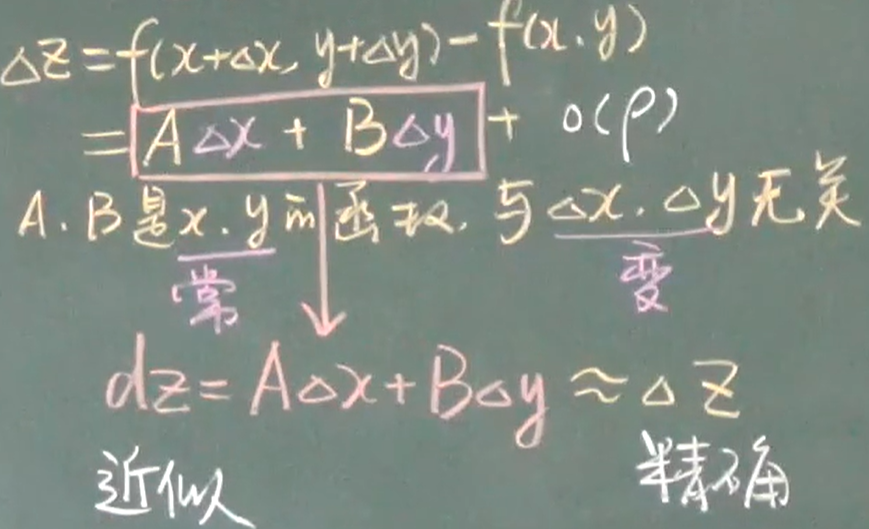 △z=f(x+△x, y+△y)-f(x.y)
=A△x+B△y+o(ρ)
A.B是x.y的函数.与△x.△y无关
常 变
dz=A△x+B△y≈△z
近似 精确